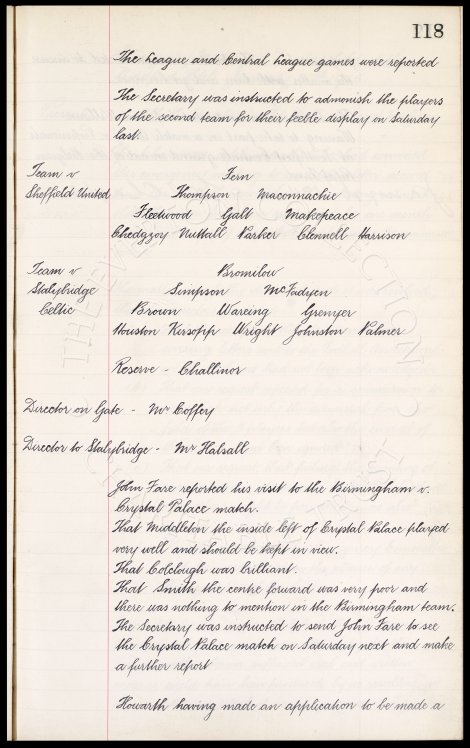 118
The League and Central League games were reported
The Secretary was instructed to admonish the players
of the second team for their feeble display on Saturday
last.
Team v
Sheffield United
Fern
Thompson Maconnachie
Fleetwood Galt Makepeace
Chedgzoy Nuttall Parker Clennell Harrison
Team v
Stalybridge
Celtic
Bromilow
Simpson McFadyen
Brown Wareing Grenyer
Houston Kirsopp Wright Johnston Palmer
Reserve - Challinor
Director on Gate - Mr Coffey
Director to Stalybridge - Mr Halsall
John Fare reported his visit to the Birmingham v.
Crystal Palace match.
That Middleton the inside left of Crystal Palace played
very well and should be kept in view.
That Colclough was brilliant.
That Smith the centre forward was very poor and
there was nothing to mention in the Birmingham team.
The Secretary was instructed to send John Fare to see
the Crystal Palace match on Saturday next and make
a further report
Howarth having made an application to be made a